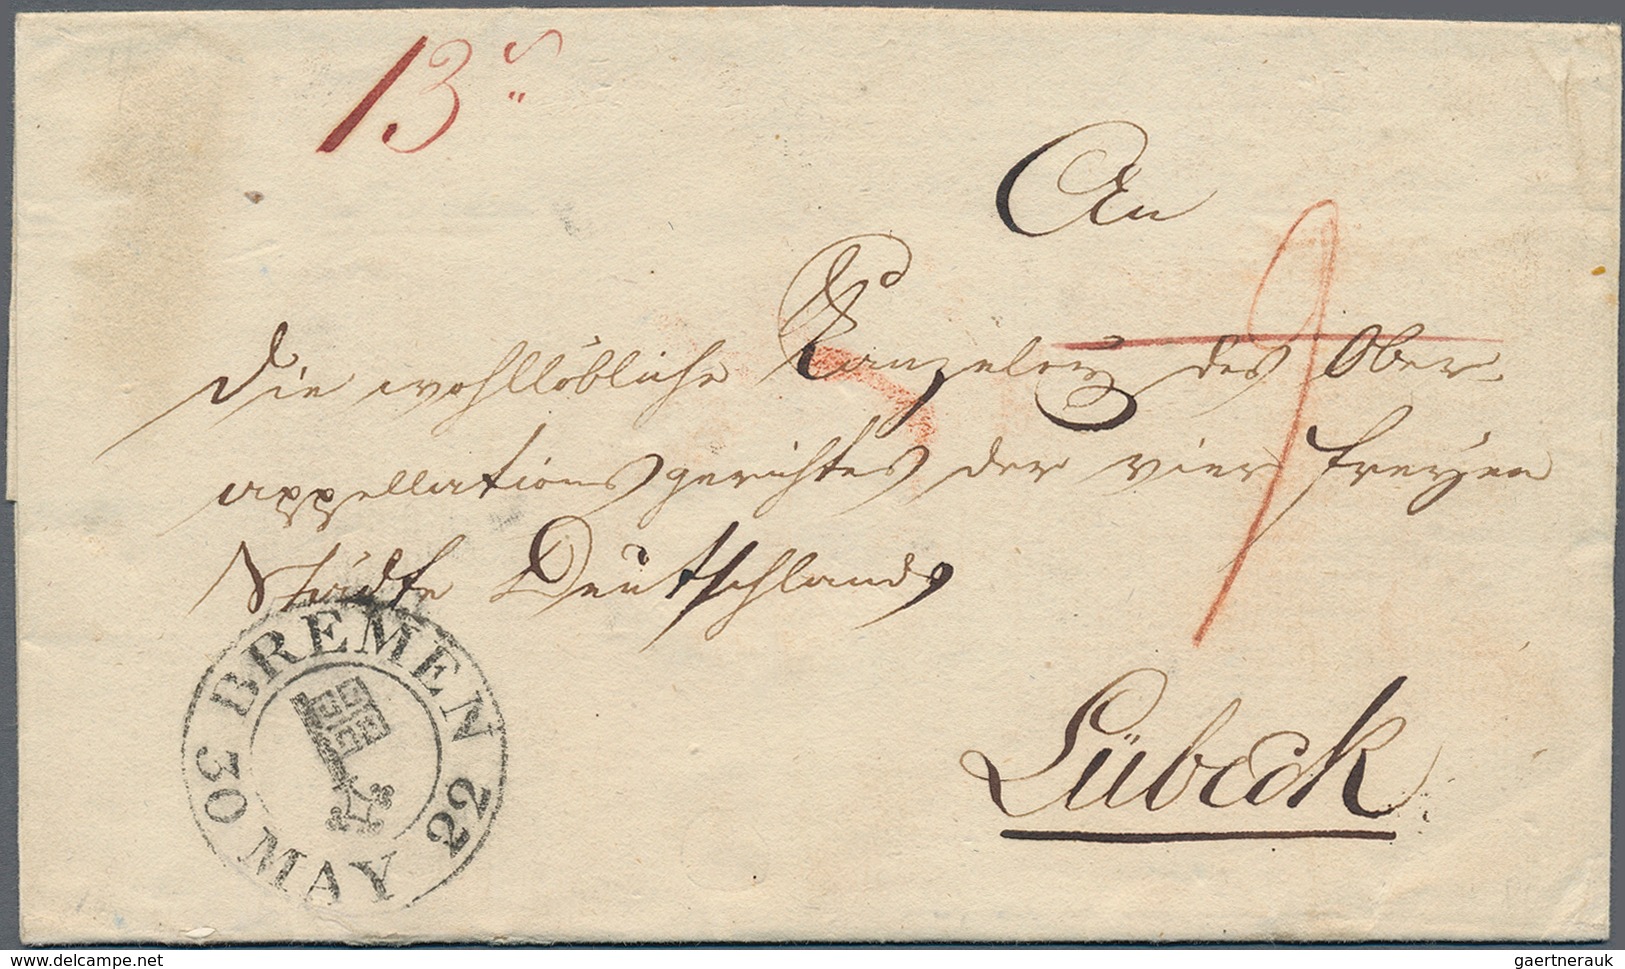 13 s
An
die wohllöbliche Canzeley des Ober-
appellationsgerichtes der vier freyen
Städte Deutschlands
Lübeck
BREMEN
30 MAY 22
delcampe.net
gaertnerauk